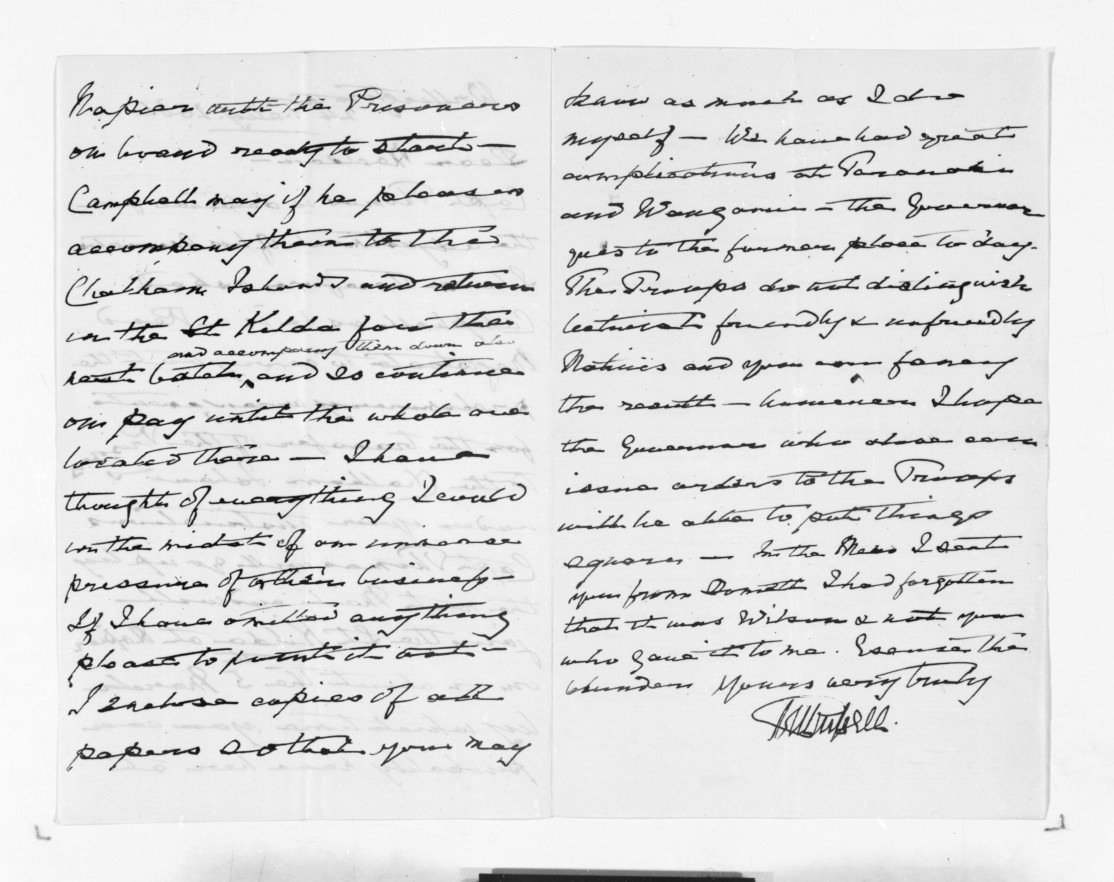 Napier with the Prisoners
on board ready to start —
Campbell may if he pleases
accompany them to the
Chatham Islands and return
in the St Kilda for the
and accompany them down also
next batch, and so continue
on pay until the whole are
located there — I have
thought of everything I could
in the midst of an immense
pressure of other business —
If I have omitted anything
please to point it out —
I enclose copies of all
papers so that you may
know as much as I do
myself — We have had great
complications at Taranaki
and Wanganui — the Governor
goes to the former place to day.
The Troops do not distinguish
between friendly & unfriendly
Natives and you can fancy
the result — however I hope
the Governor who alone can
issue orders to the Troops
will be able to put things
square — In the Memo I sent
you from I had forgotten
that it was Wilson & not you
who gave it to me. Excuse the
blunder Yours very truly